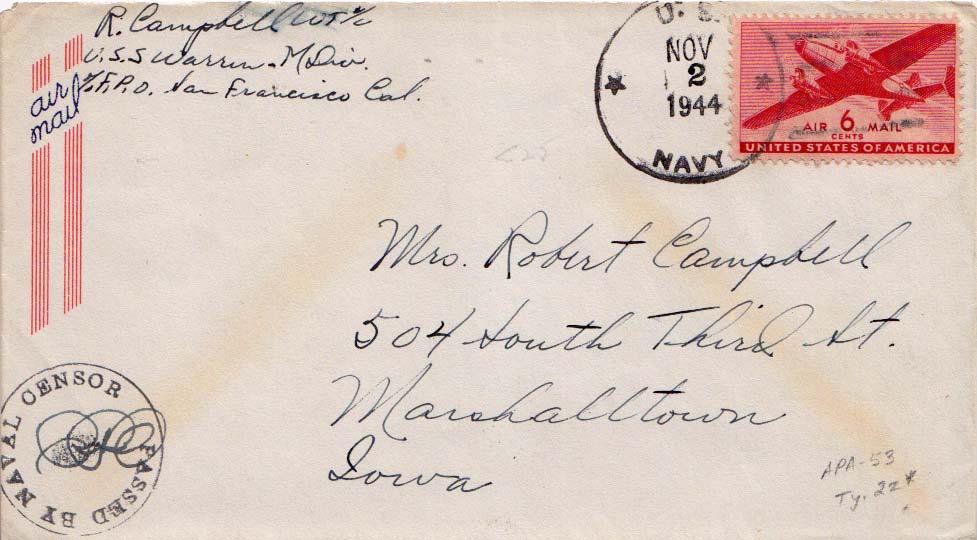 R. Campbell WT 2/c
U.S.S Warren - M Div.
℅ F.P.O. San Francisco Cal.
air
mail
U. S.
NOV
2
1944
NAVY
AIR 6 MAIL
CENTS
UNITED STATES OF AMERICA
Mrs. Robert Campbell
504 South Third St.
Marshalltown
Iowa
PASSED BY NAVAL CENSOR
APA-53
Ty. 2z*